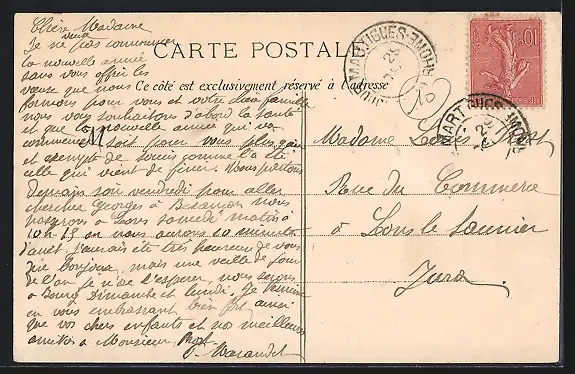 Chère Madame
Je ne veux pas commencer
la nouvelle année
sans vous offrir les
vœux que nous
formons pour vous et votre chère famille
nous vous souhaitons d'abord la santé
et que la nouvelle année qui va
commencer soit pour vous plus gaie
et exempte de soucis comme l'a été
celle qui vient de finir. Nous partons
Demain soir vendredi pour aller
chercher Georges à Besançon nous
passerons à Lons samedi matin à
10 h 15 on nous aurons 10 minutes
d'arrêt, j'aurais été très heureuse de vous
dire bonjour, mais une veille de jour
de l'an je n'ose l'espérer, nous serons
à Bourg Dimanche et lundi. Je termine
en vous embrassant bien fort ainsi
que vos chers enfants et nos meilleures
amitiés à Monsieur
Marandet
CARTE POSTALE
Ce côté est exclusivement réservé à l'adresse
M
Madame Louis
Rue du Commerce
à Lons le Saunier
Jura
MARTIGUES
MARTIGUES
10